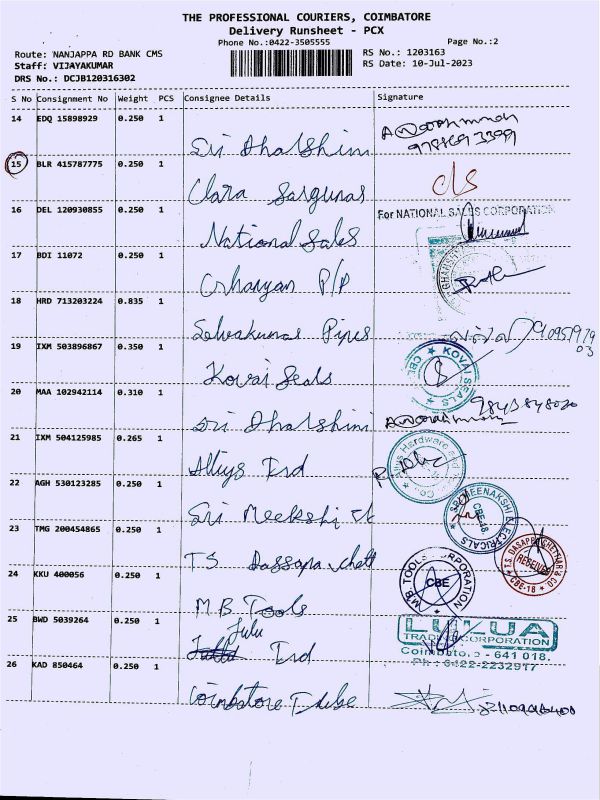 THE PROFESSIONAL COURIERS, COIMBATORE
Delivery Runsheet - PCX
Phone No.:0422-3505555 Page No.:2
Route: NANJAPPA RD BANK CMS RS No.: 1203163
Staff: VIJAYAKUMAR RS Date: 10-Jul-2023
DRS No.: DCJB120316302
S No Consignment No Weight PCS Consignee Details Signature
14 EDQ 15898929 0.250 1
Sri Dharshini
15 BLR 415787775 0.250 1
Clara Sargunas
16 DEL 120930855 0.250 1 For NATIONAL SALES CORPORATION
National Sales
17 BDI 11072 0.250 1
P/P
18 HRD 713203224 0.835 1
Selvakumar Pipes
19 IXM 503896867 0.350 1 KOVAI SEALS CBE
Kovai Seals
20 MAA 102942114 0.310 1
Sri Dharshini
21 IXM 504125985 0.265 1 Hardware and
Trd
22 AGH 530123285 0.250 1 SRI MEENAKSHI ELECTRICALS CBE-18
Sri
23 TMG 200454865 0.250 1 T.S. DASAPPA CHETTIAR & CO RECEIVED CBE-18
T.S. Dassapa chett
24 KKU 400056 0.250 1 M.B TOOLS CORPORATION CBE
M.B. Tools
25 BWD 5039264 0.250 1 LULUA TRADING CORPORATION
Lulu Trd Coimbatore - 641 018.
Ph : 0422-2232917
26 KAD 850464 0.250 1
Coimbatore Tube